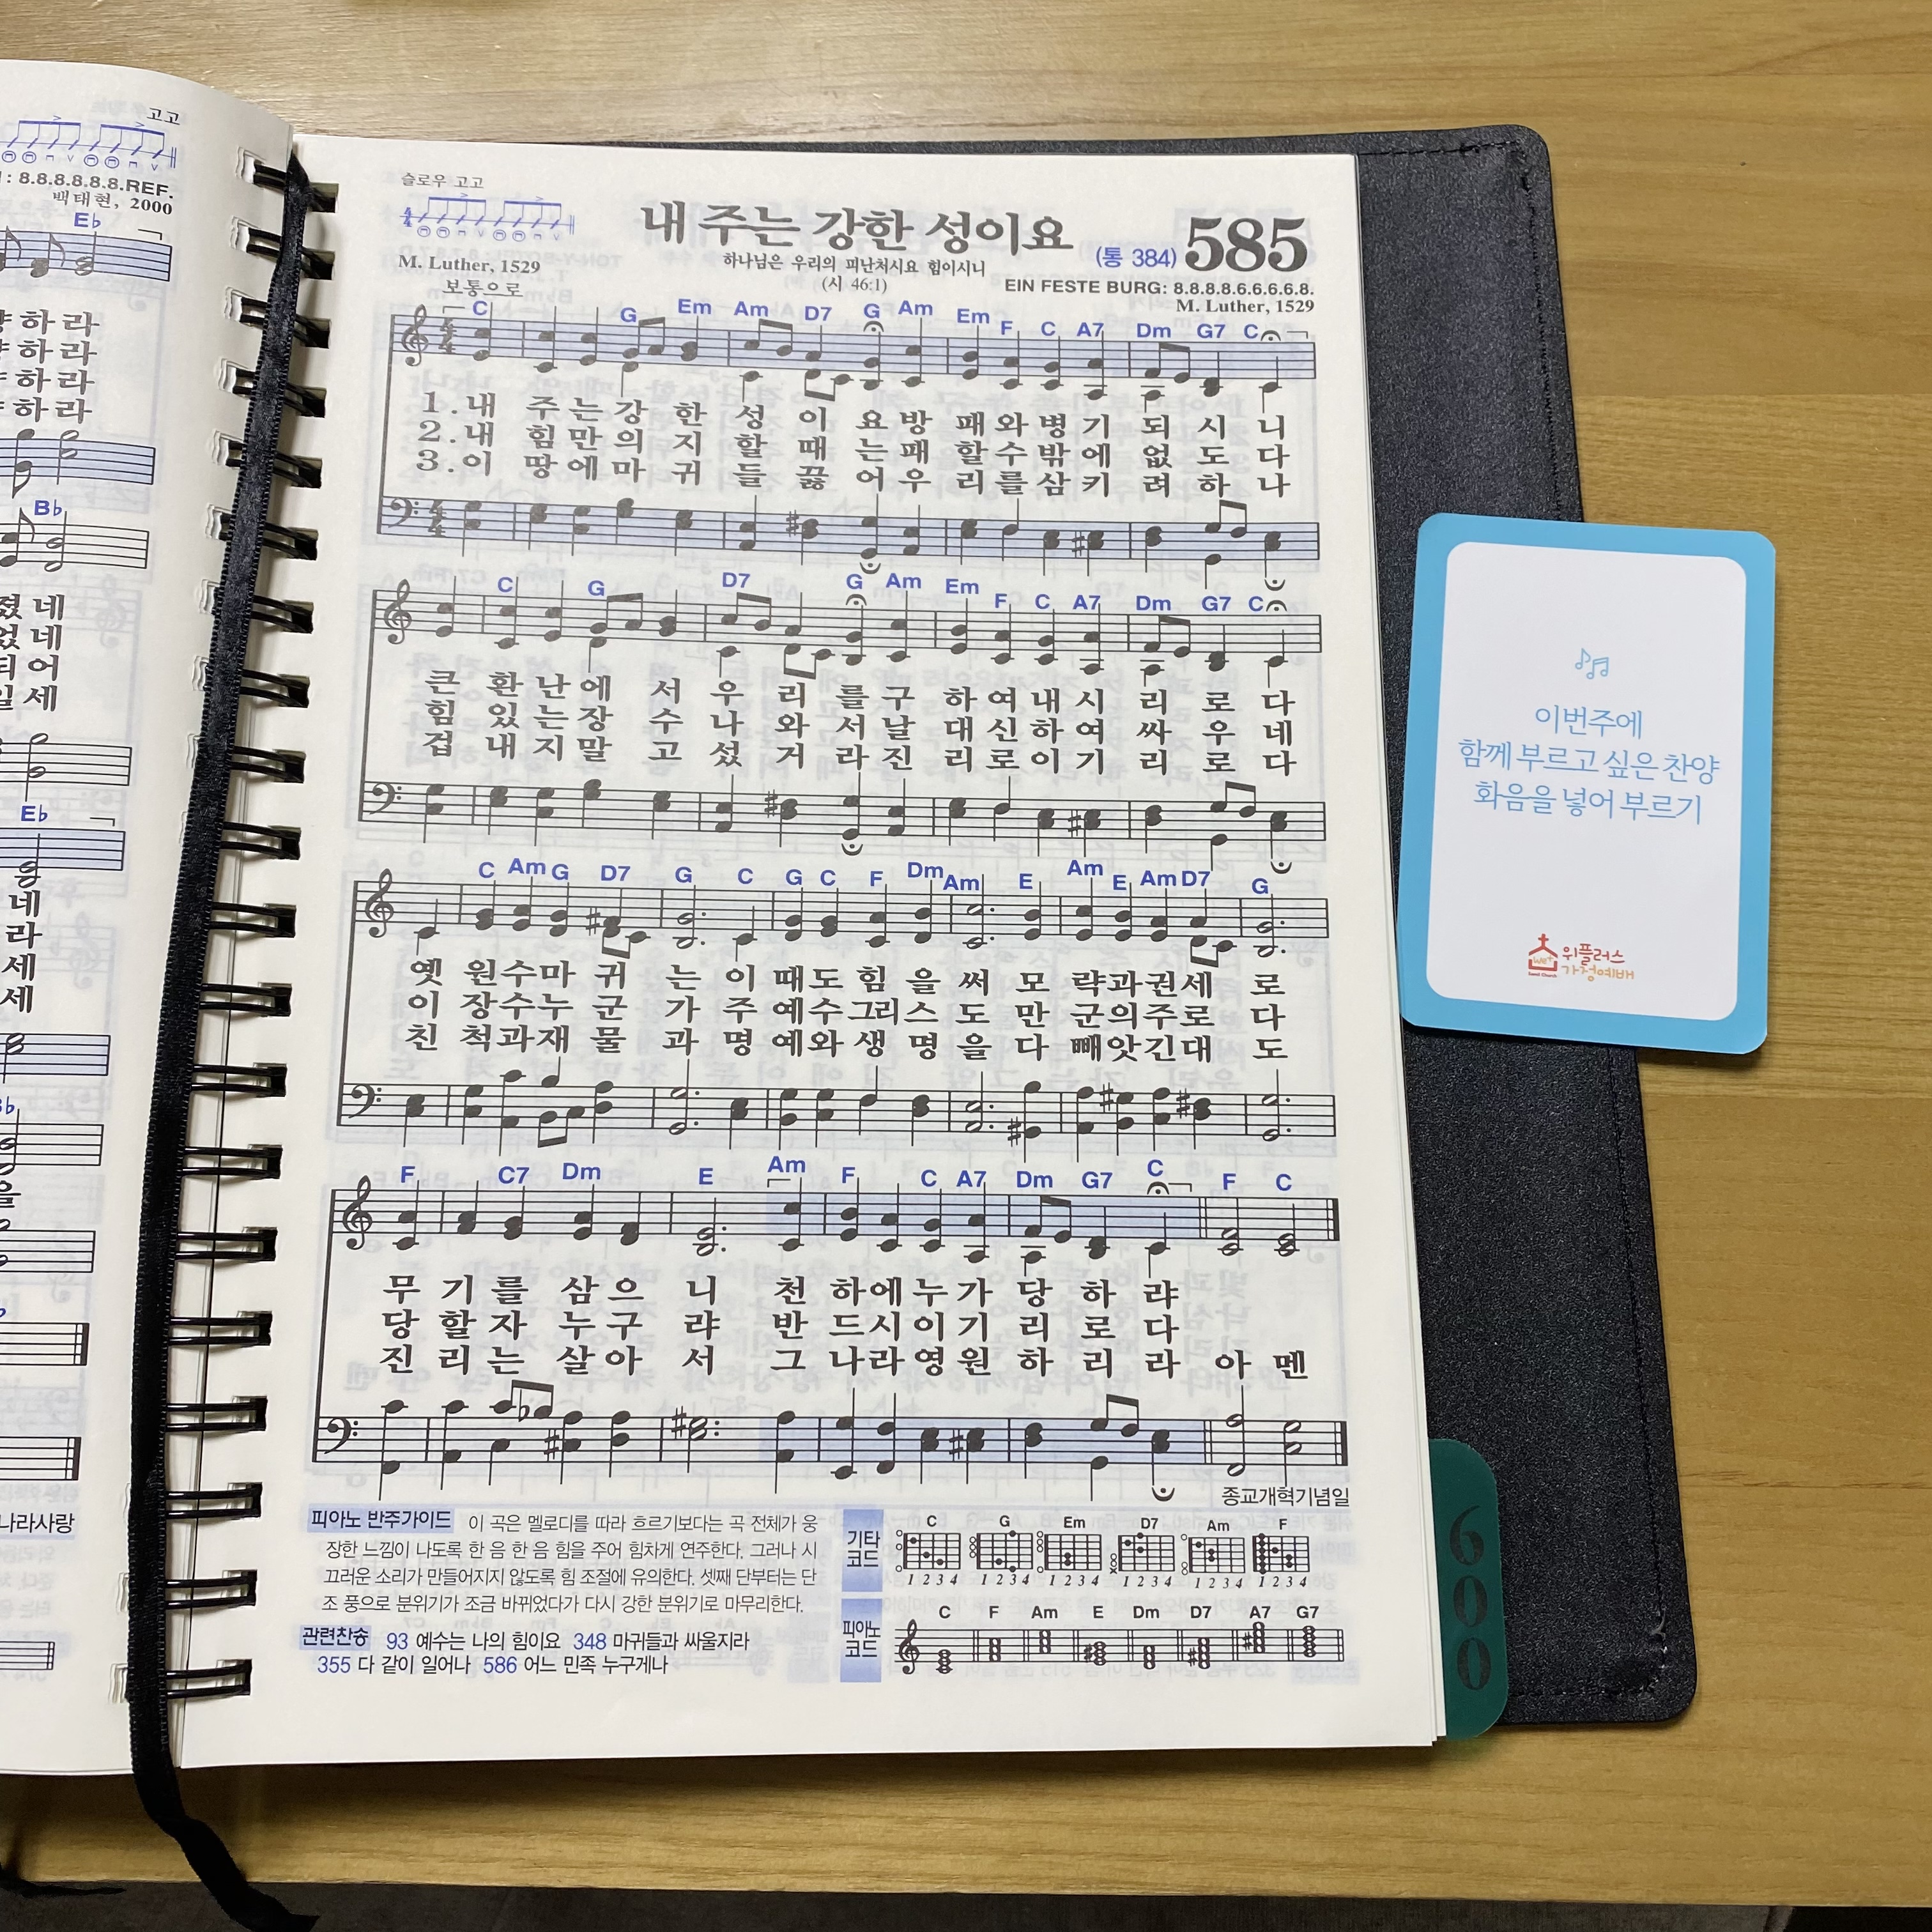 고고
8.8.8.8.8.8.8.REF.
백태현, 2000
E♭
하라
하라
하라
하라
B♭
졌네
었네
되어
일세
E♭
네
라
세
세
나라사랑
슬로우 고고
내 주는 강한 성이요
(통 384) 585
M. Luther, 1529
하나님은 우리의 피난처시요 힘이시니
보통으로
(시 46:1)
EIN FESTE BURG: 8.8.8.8.6.6.6.6.8.
M. Luther, 1529
C G Em Am D7 G Am Em F C A7 Dm G7 C
1. 내 주는강 한 성 이 요방 패와병기 되 시 니
2. 내 힘만의 지 할 때 는패 할수밖에 없 도 다
3. 이 땅에마 귀 들 끓 어우 리를삼키 려 하 나
C G D7 G Am Em F C A7 Dm G7 C
큰 환난에 서 우 리 를구 하여내시 리 로 다
힘 있는장 수 나 와 서날 대신하여 싸 우 네
겁 내지말 고 섰 거 라진 리로이기 리 로 다
C Am G D7 G C G C F Dm Am E Am E Am D7 G
옛 원수마 귀 는 이 때도 힘 을 써 모 략과권세 로
이 장수누 군 가 주 예수 그리스 도 만 군의주로 다
친 척과재 물 과 명 예와 생 명 을 다 빼앗긴대 도
F C7 Dm E Am F C A7 Dm G7 C F C
무 기 를 삼으 니 천 하에누가 당 하 랴
당 할 자 누구 랴 반 드시이기 리 로 다
진 리 는 살아 서 그 나라영원 하 리 라 아 멘
종교개혁기념일
피아노 반주가이드 이 곡은 멜로디를 따라 흐르기보다는 곡 전체가 웅
장한 느낌이 나도록 한 음 한 음 힘을 주어 힘차게 연주한다. 그러나 시
끄러운 소리가 만들어지지 않도록 힘 조절에 유의한다. 셋째 단부터는 단
조 풍으로 분위기가 조금 바뀌었다가 다시 강한 분위기로 마무리한다.
관련찬송 93 예수는 나의 힘이요 348 마귀들과 싸울지라
355 다 같이 일어나 586 어느 민족 누구게나
기타
코드
C G Em D7 Am F
1 2 3 4 1 2 3 4 1 2 3 4 1 2 3 4 1 2 3 4 1 2 3 4
피아노
코드
C F Am E Dm D7 A7 G7
600
이번주에
함께 부르고 싶은 찬양
화음을 넣어 부르기
we+
위플러스
가정예배